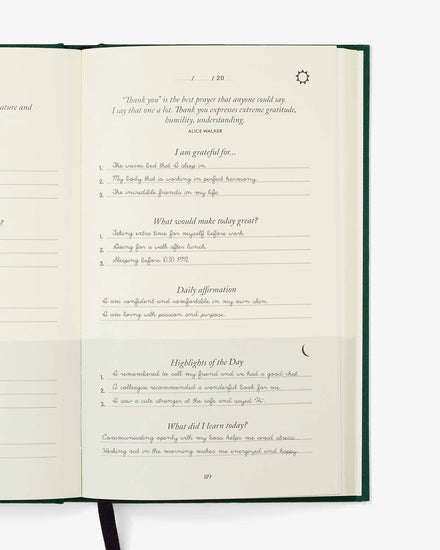 ature and
?
/ / 20
“Thank you” is the best prayer that anyone could say.
I say that one a lot. Thank you expresses extreme gratitude,
humility, understanding.
ALICE WALKER
I am grateful for...
1. The warm bed that I sleep in.
2. My body that is working in perfect harmony.
3. The incredible friends in my life.
What would make today great?
1. Taking extra time for myself before work.
2. Going for a walk after lunch.
3. Sleeping before 10:30 PM.
Daily affirmation
I am confident and comfortable in my own skin.
I am living with passion and purpose.
Highlights of the Day
1. I remembered to call my friend and we had a good chat.
2. A colleague recommended a wonderful book for me.
3. I saw a cute stranger at the cafe and sayed "Hi".
What did I learn today?
Communicating openly with my boss helps me avoid stress.
Working out in the morning makes me energized and happy.
119